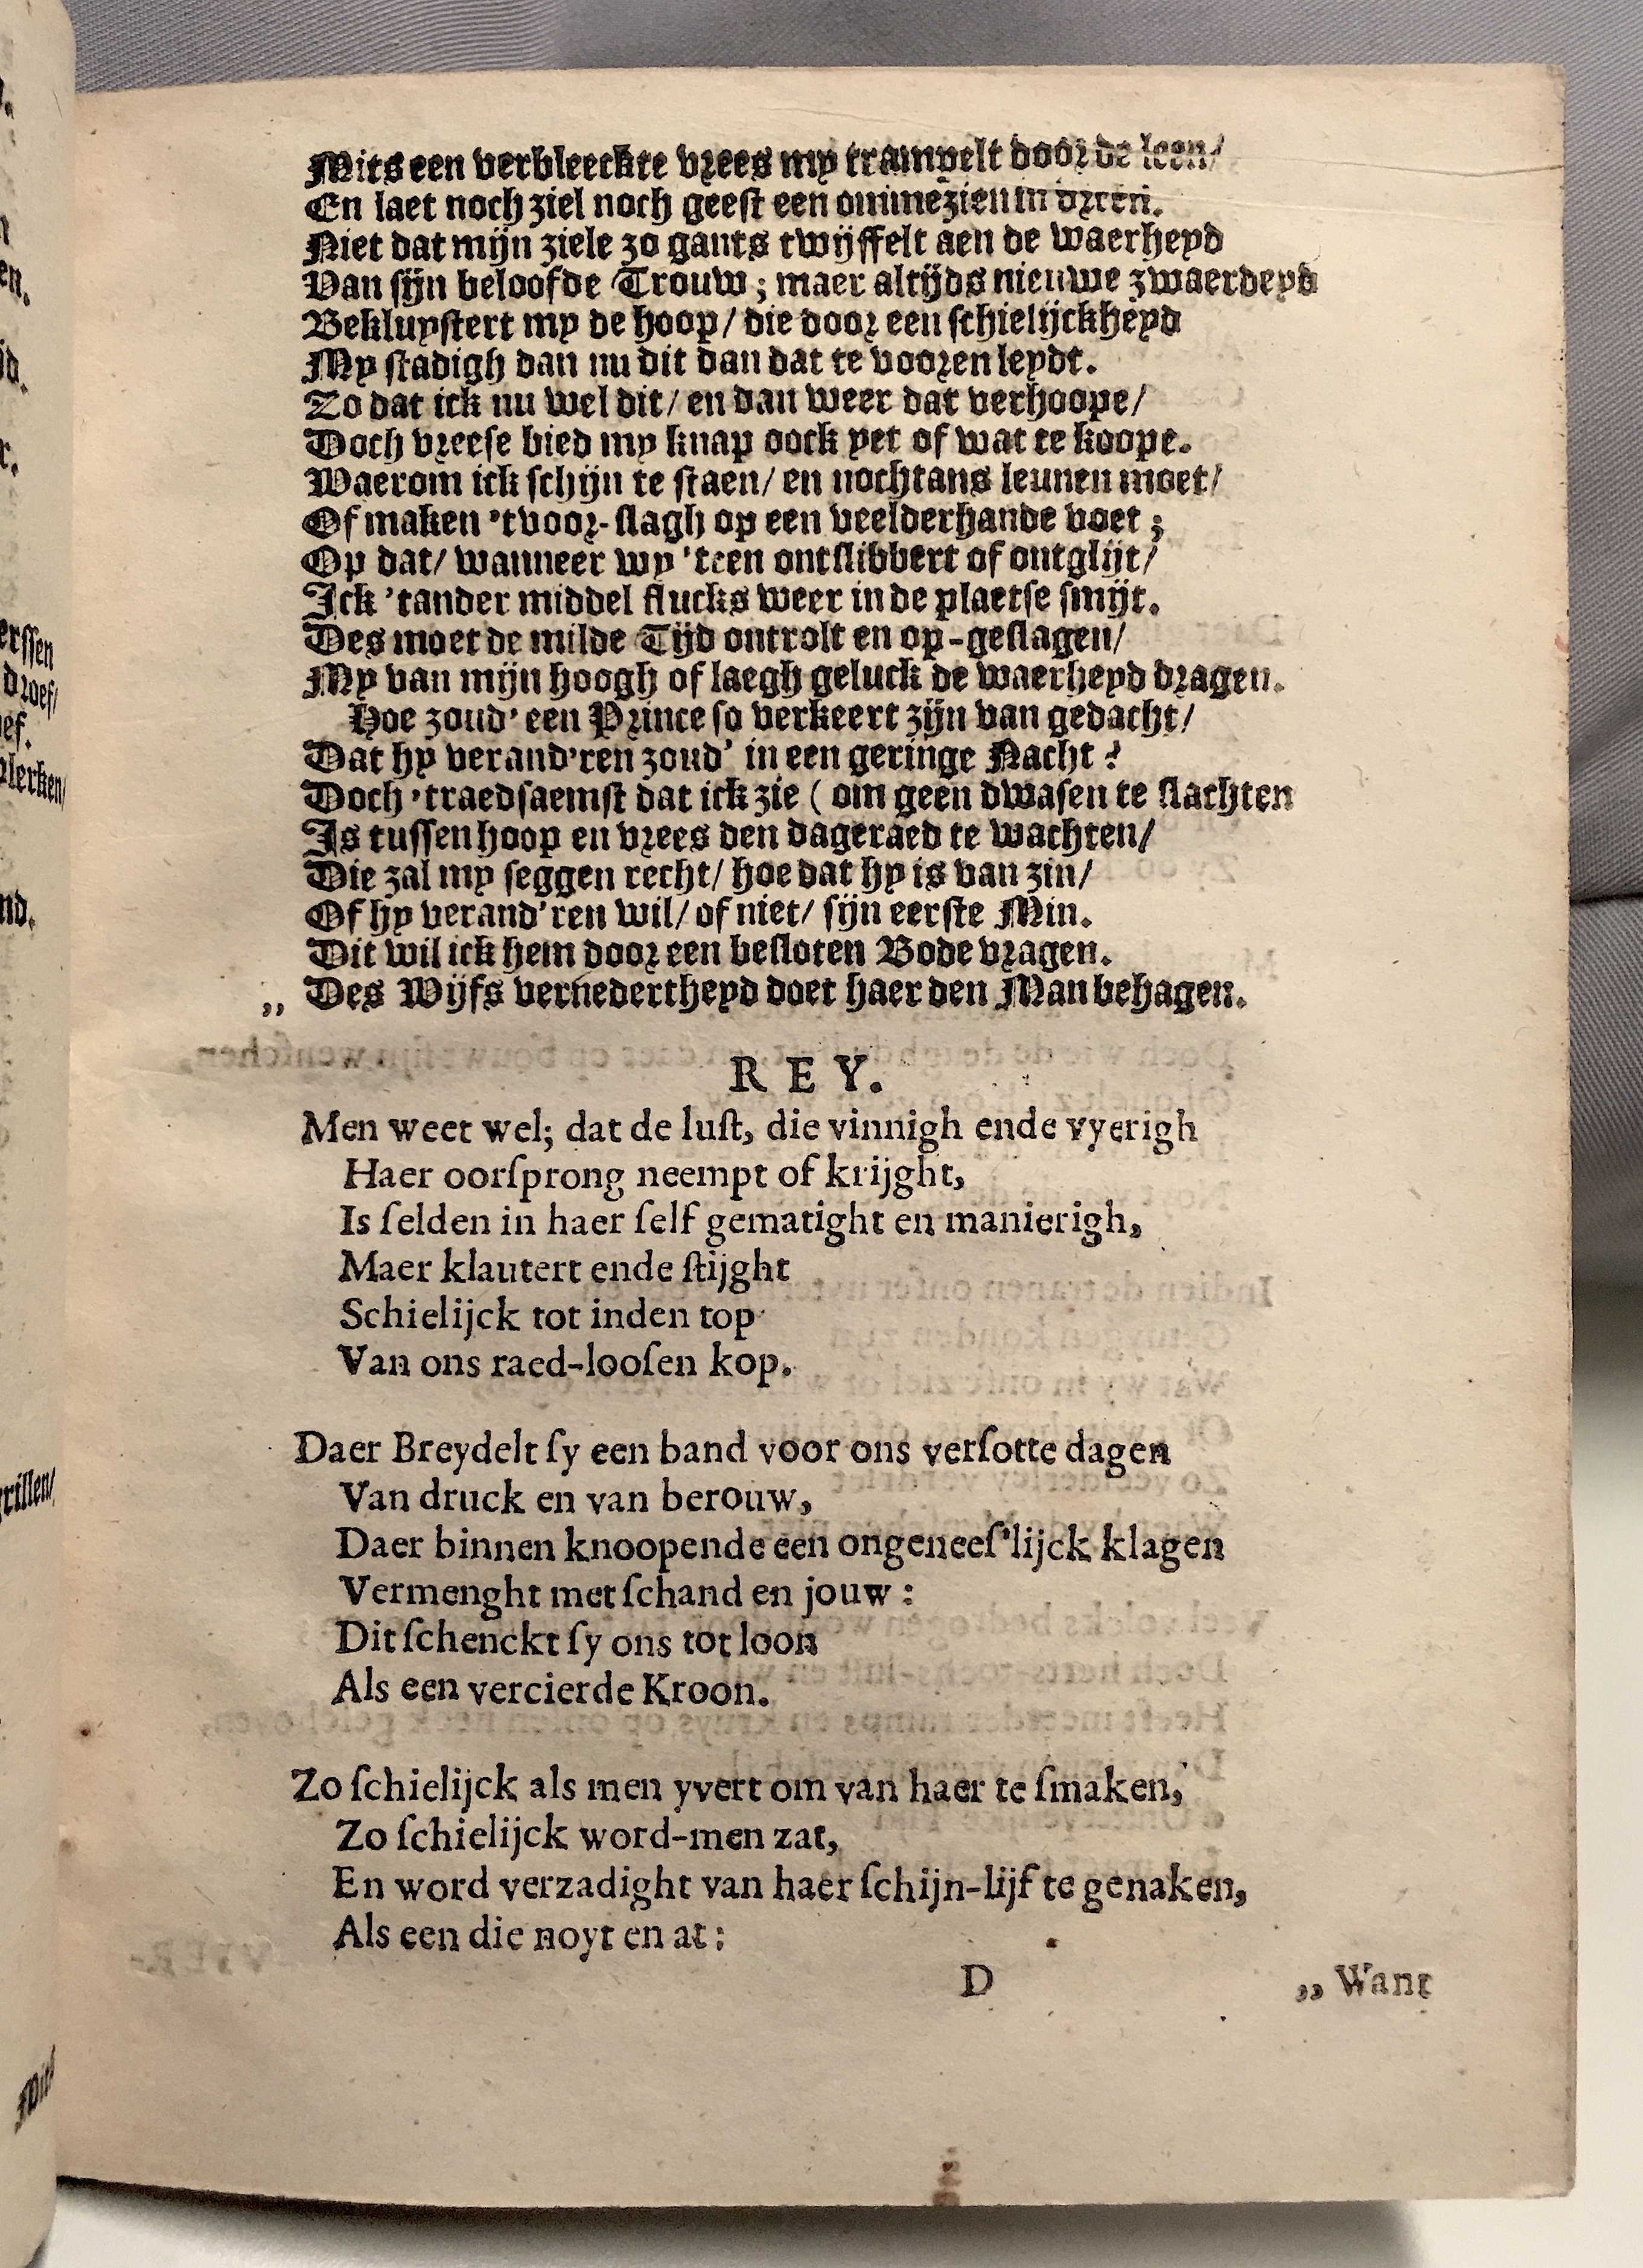 Mits een verbleeckte vrees my trampelt door de leen/
En laet noch ziel noch geest een ommezien in vreen.
Niet dat mijn ziele zo gants twijffelt aen de waerheyd
Van sijn beloofde Trouw; maer altijds nieuwe zwaerdeyd
Bekluystert my de hoop/ die door een schielijckheyd
My stadigh dan nu dit dan dat te vooren leydt.
Zo dat ick nu wel dit/ en dan weer dat verhoope/
Doch vreese bied my knap oock yet of wat te koope.
Waerom ick schijn te staen/ en nochtans leunen moet/
Of maken 'tvoor-slagh op een veelderhande voet;
Op dat/ wanneer my 'teen ontslibbert of ontglijt/
Ick 'tander middel flucks weer in de plaetse smijt.
Des moet de milde Tijd ontrolt en op-geslagen/
My van mijn hoogh of laegh geluck de waerheyd dragen.
Hoe zoud' een Prince so verkeert zijn van gedacht/
Dat hy verand'ren zoud' in een geringe Nacht?
Doch 'traedsaemst dat ick zie ( om geen dwasen te slachten
Is tussen hoop en vrees den dageraed te wachten/
Die zal my seggen recht/ hoe dat hy is van zin/
Of hy verand'ren wil/ of niet/ sijn eerste Min.
Dit wil ick hem door een besloten Bode vragen.
,, Des Wijfs vernedertheyd doet haer den Man behagen.
REY.
Men weet wel; dat de luſt, die vinnigh ende vyerigh
Haer oorſprong neempt of krijght,
Is ſelden in haer ſelf gematight en manierigh,
Maer klautert ende ſtijght
Schielijck tot inden top
Van ons raed-looſen kop.
Daer Breydelt ſy een band voor ons verſotte dagen
Van druck en van berouw,
Daer binnen knoopende een ongeneeſ'lijck klagen
Vermenght met ſchand en jouw:
Dit ſchenckt ſy ons tot loon
Als een vercierde Kroon.
Zo ſchielijck als men yvert om van haer te ſmaken,
Zo ſchielijck word-men zat,
En word verzadight van haer ſchijn-lijf te genaken,
Als een die noyt en at:
D
,, Want